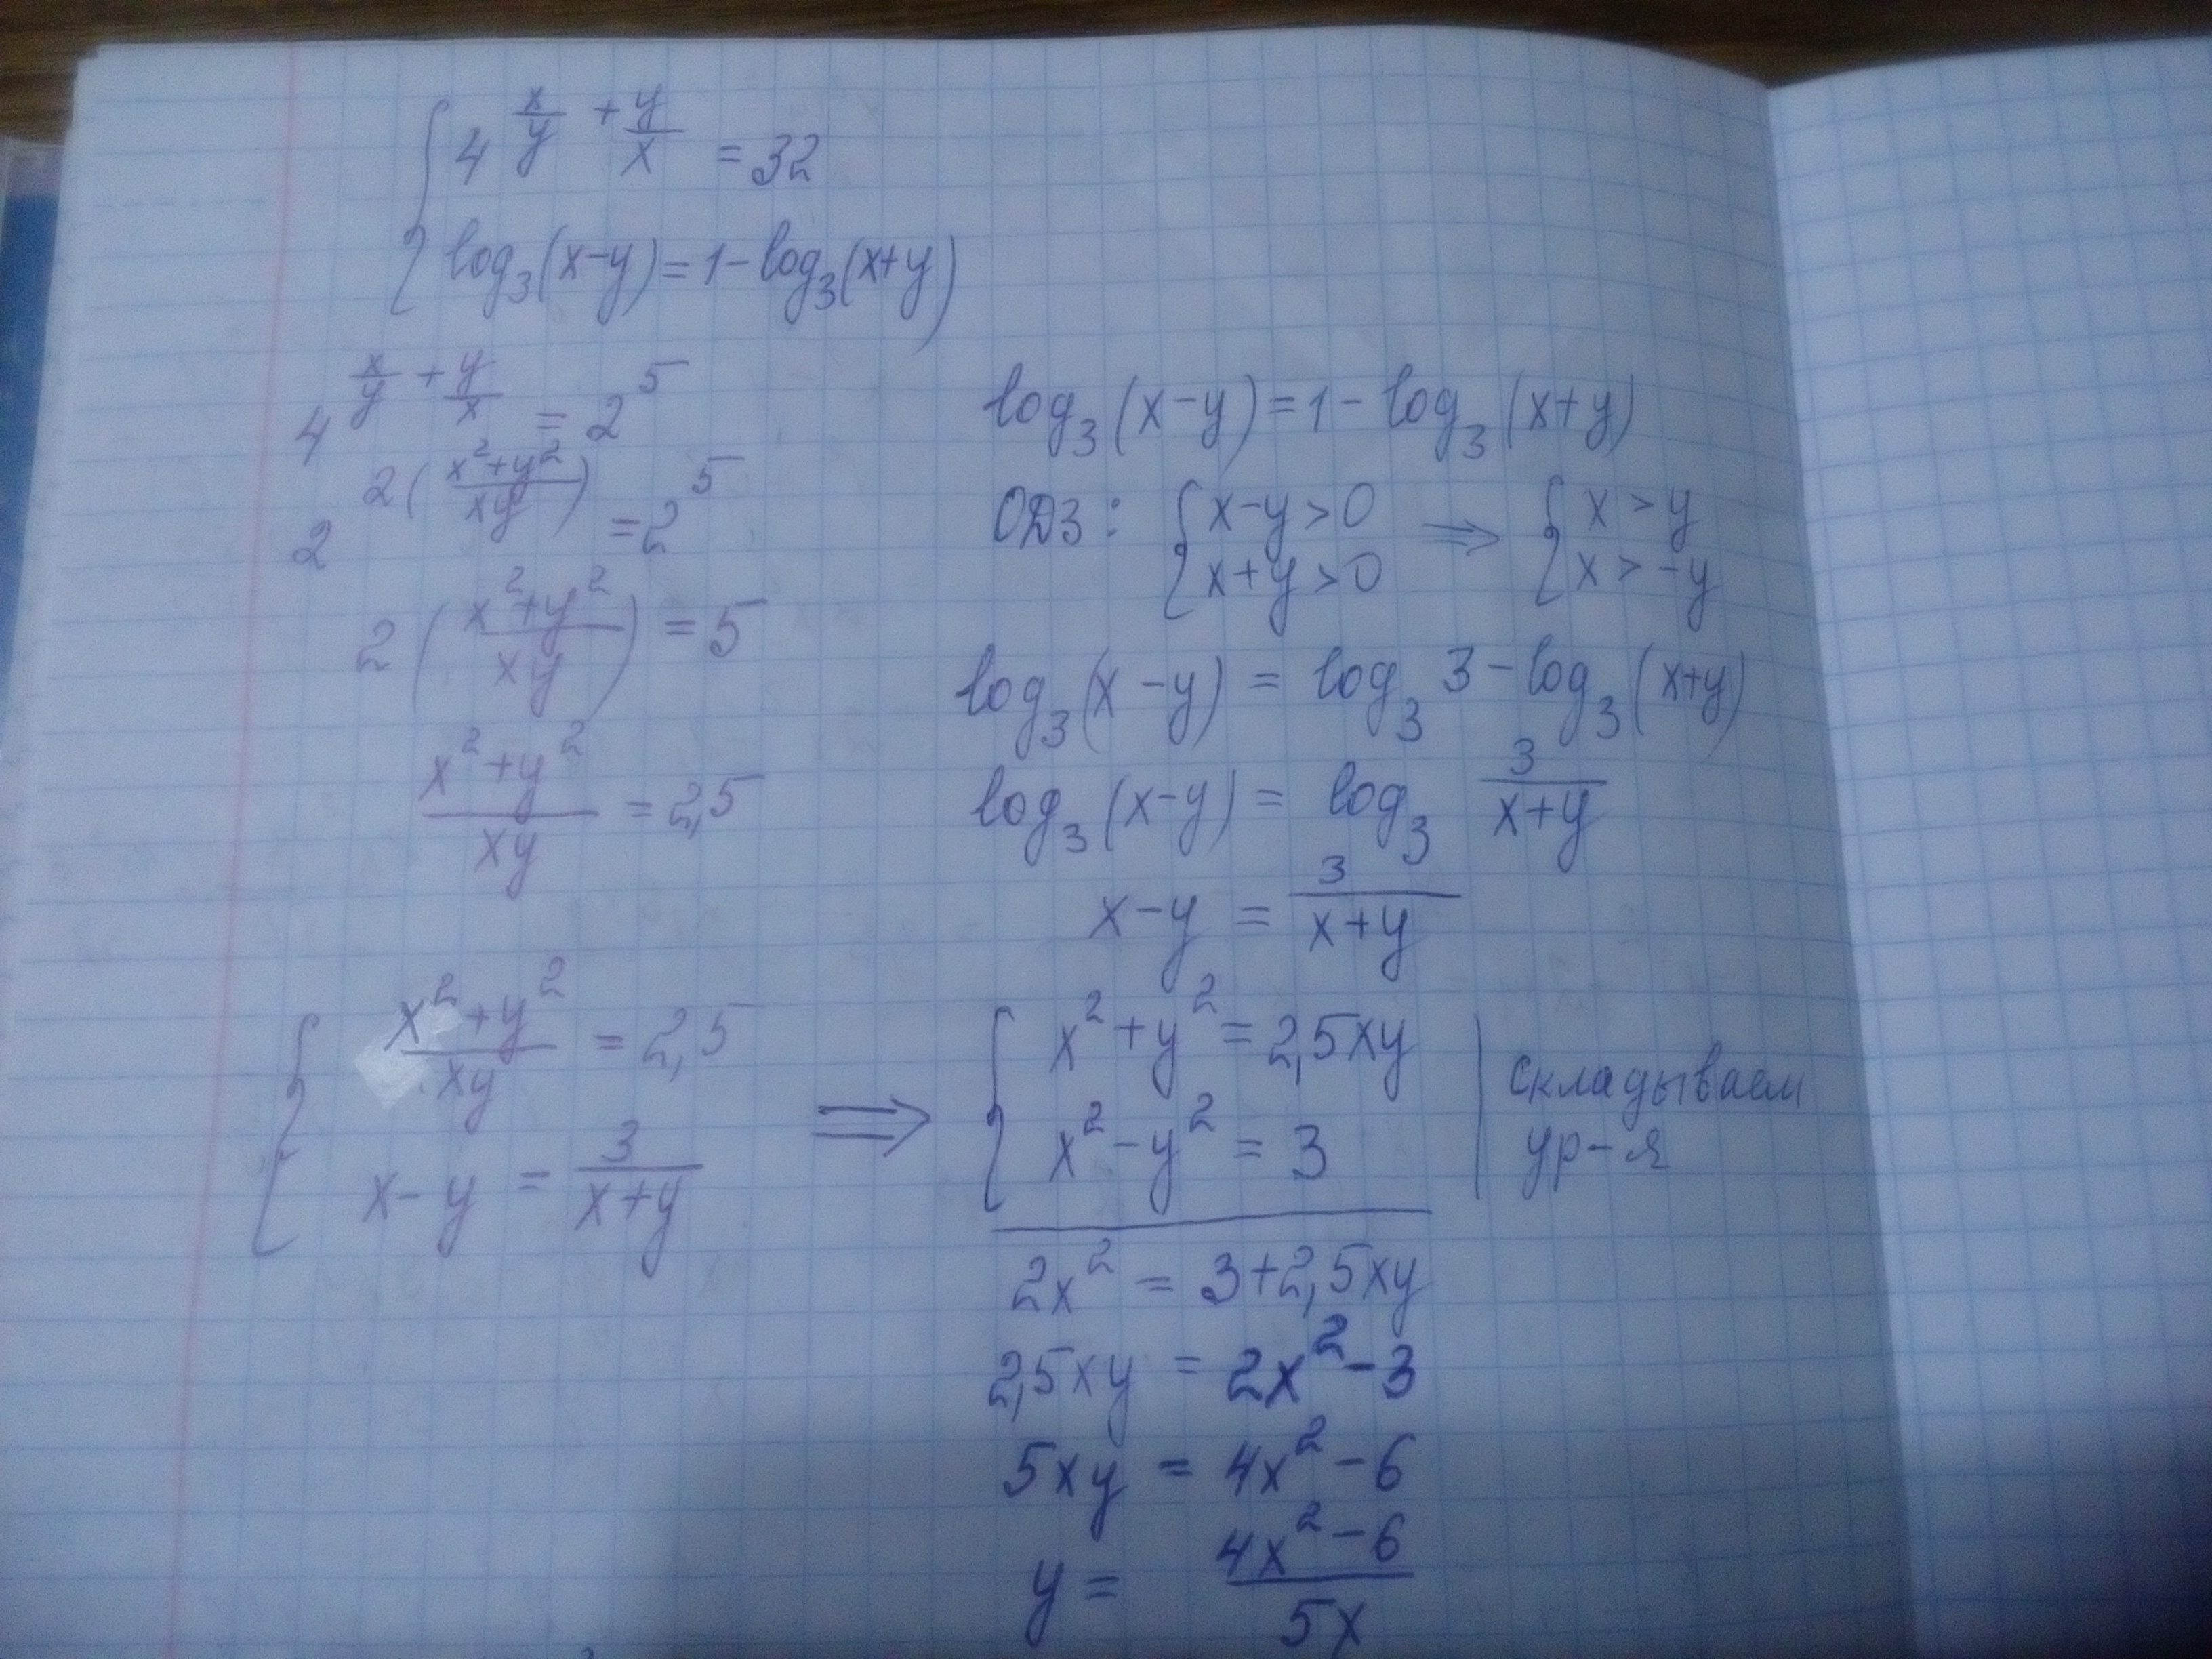 { 4^(x/y + y/x) = 32
{ log₃(x-y) = 1 - log₃(x+y)
4^(x/y + y/x) = 2⁵
2^(2((x²+y²)/(xy))) = 2⁵
2((x²+y²)/(xy)) = 5
(x²+y²)/(xy) = 2,5
log₃(x-y) = 1 - log₃(x+y)
ОДЗ: { x-y>0 ⇒ { x>y
{ x+y>0 { x>-y
log₃(x-y) = log₃ 3 - log₃(x+y)
log₃(x-y) = log₃ 3/(x+y)
x-y = 3/(x+y)
{ (x²+y²)/(xy) = 2,5
{ x-y = 3/(x+y)
⇒
{ x²+y² = 2,5xy | складываем
{ x²-y² = 3 | ур-я
2x² = 3+2,5xy
2,5xy = 2x²-3
5xy = 4x²-6
y = (4x²-6)/(5x)